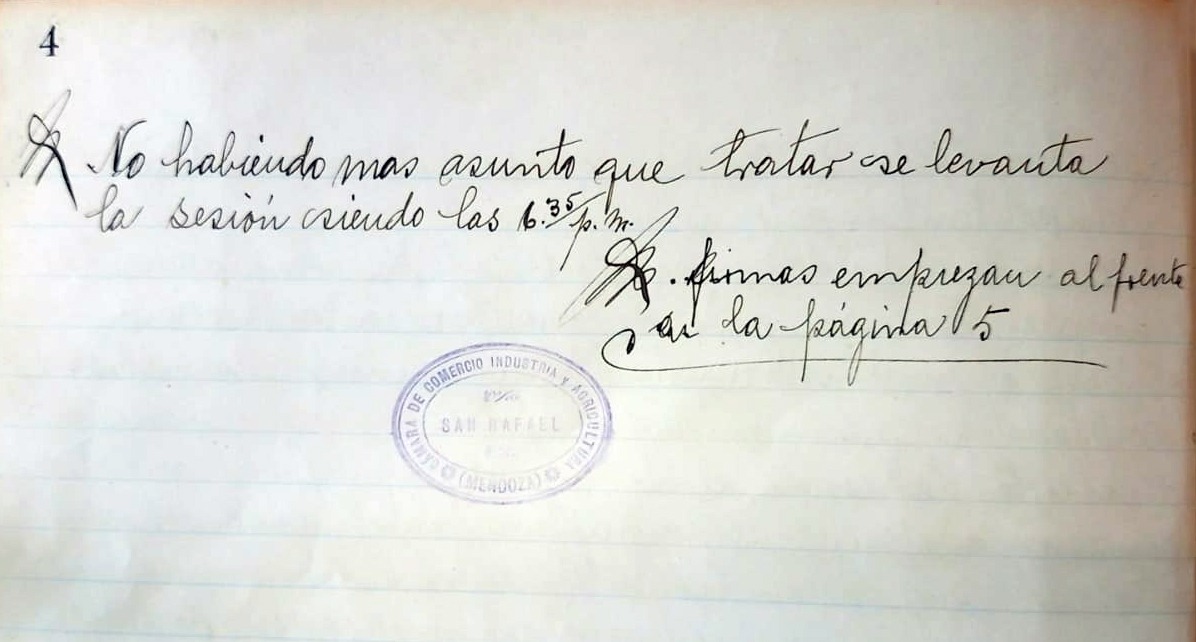 4
No habiendo mas asunto que tratar se levanta
la sesión siendo las 6.35/p.m.
firmas empiezan al frente
en la página 5
CÁMARA DE COMERCIO INDUSTRIA Y AGRICULTURA
SAN RAFAEL
(MENDOZA)